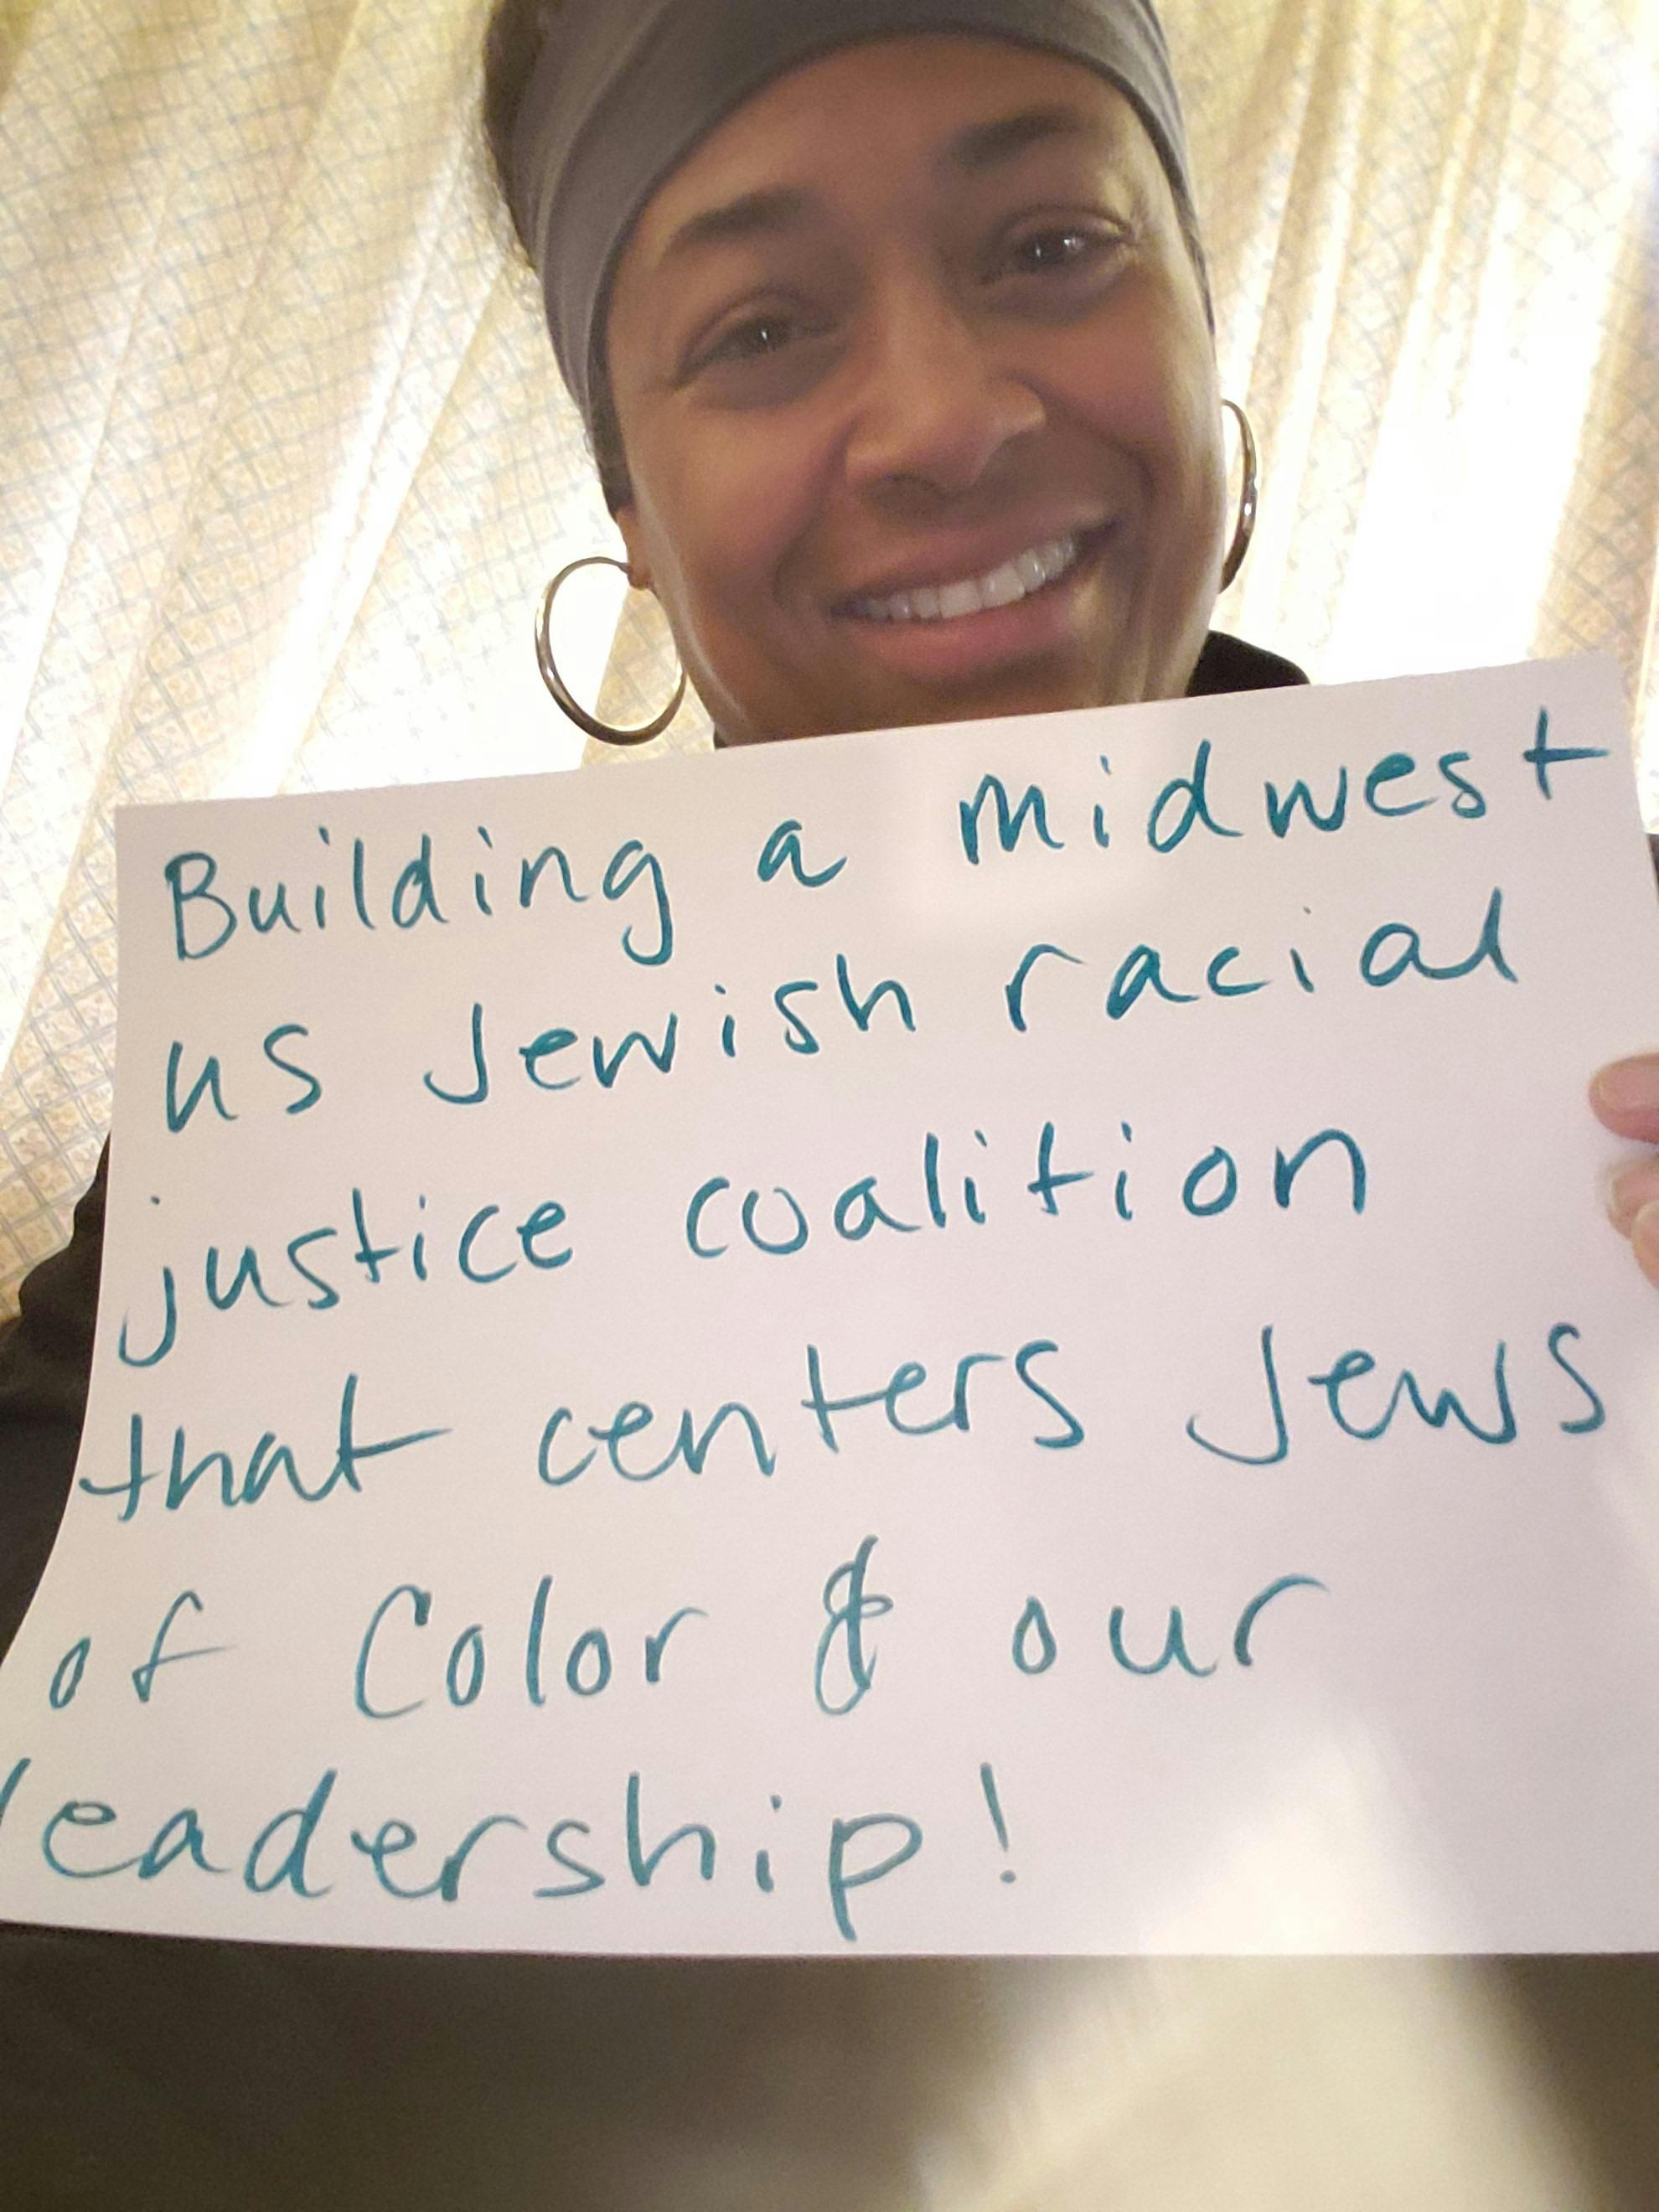 Building a midwest
us Jewish racial
justice coalition
that centers Jews
of Color & our
leadership!